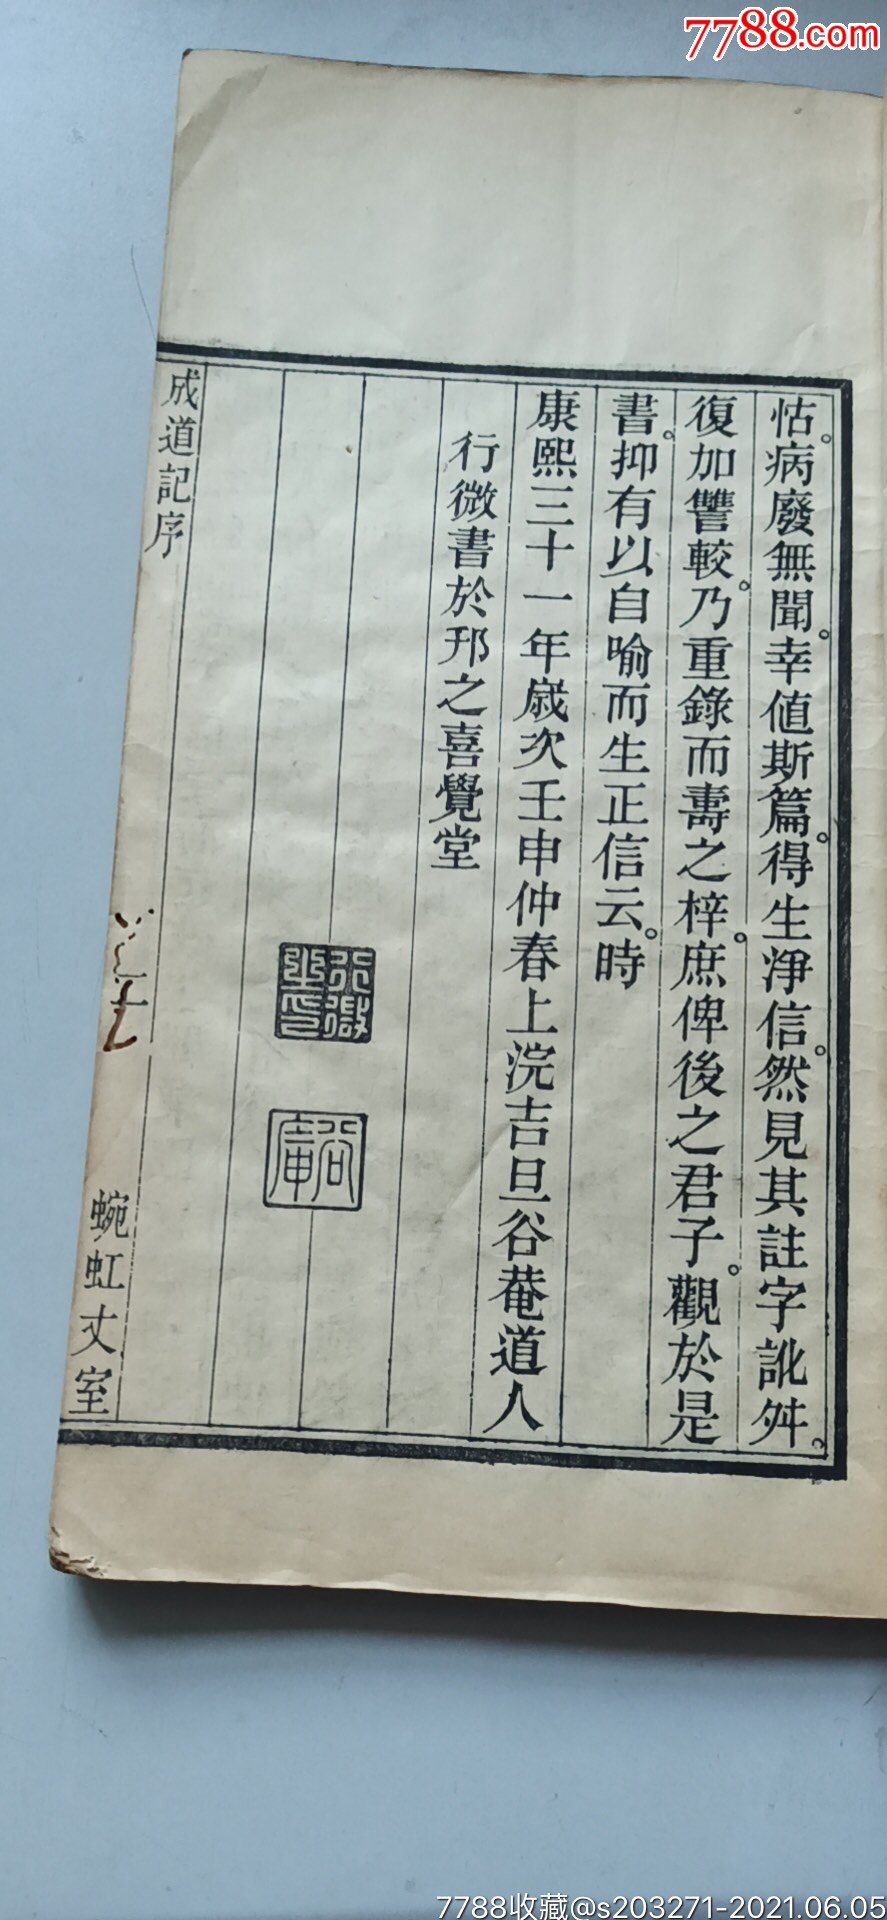 7788.com
怙。病廢無聞。幸値斯篇。得生淨信。然見其註字訛舛。
復加讐較。乃重錄而壽之梓。庶俾後之君子。觀於是
書。抑有以自喻而生正信云。時
康熙三十一年歲次壬申仲春上浣吉旦谷菴道人
行微書於邗之喜覺堂
成道記序
蜿虹丈室
7788收藏@s203271-2021.06.05